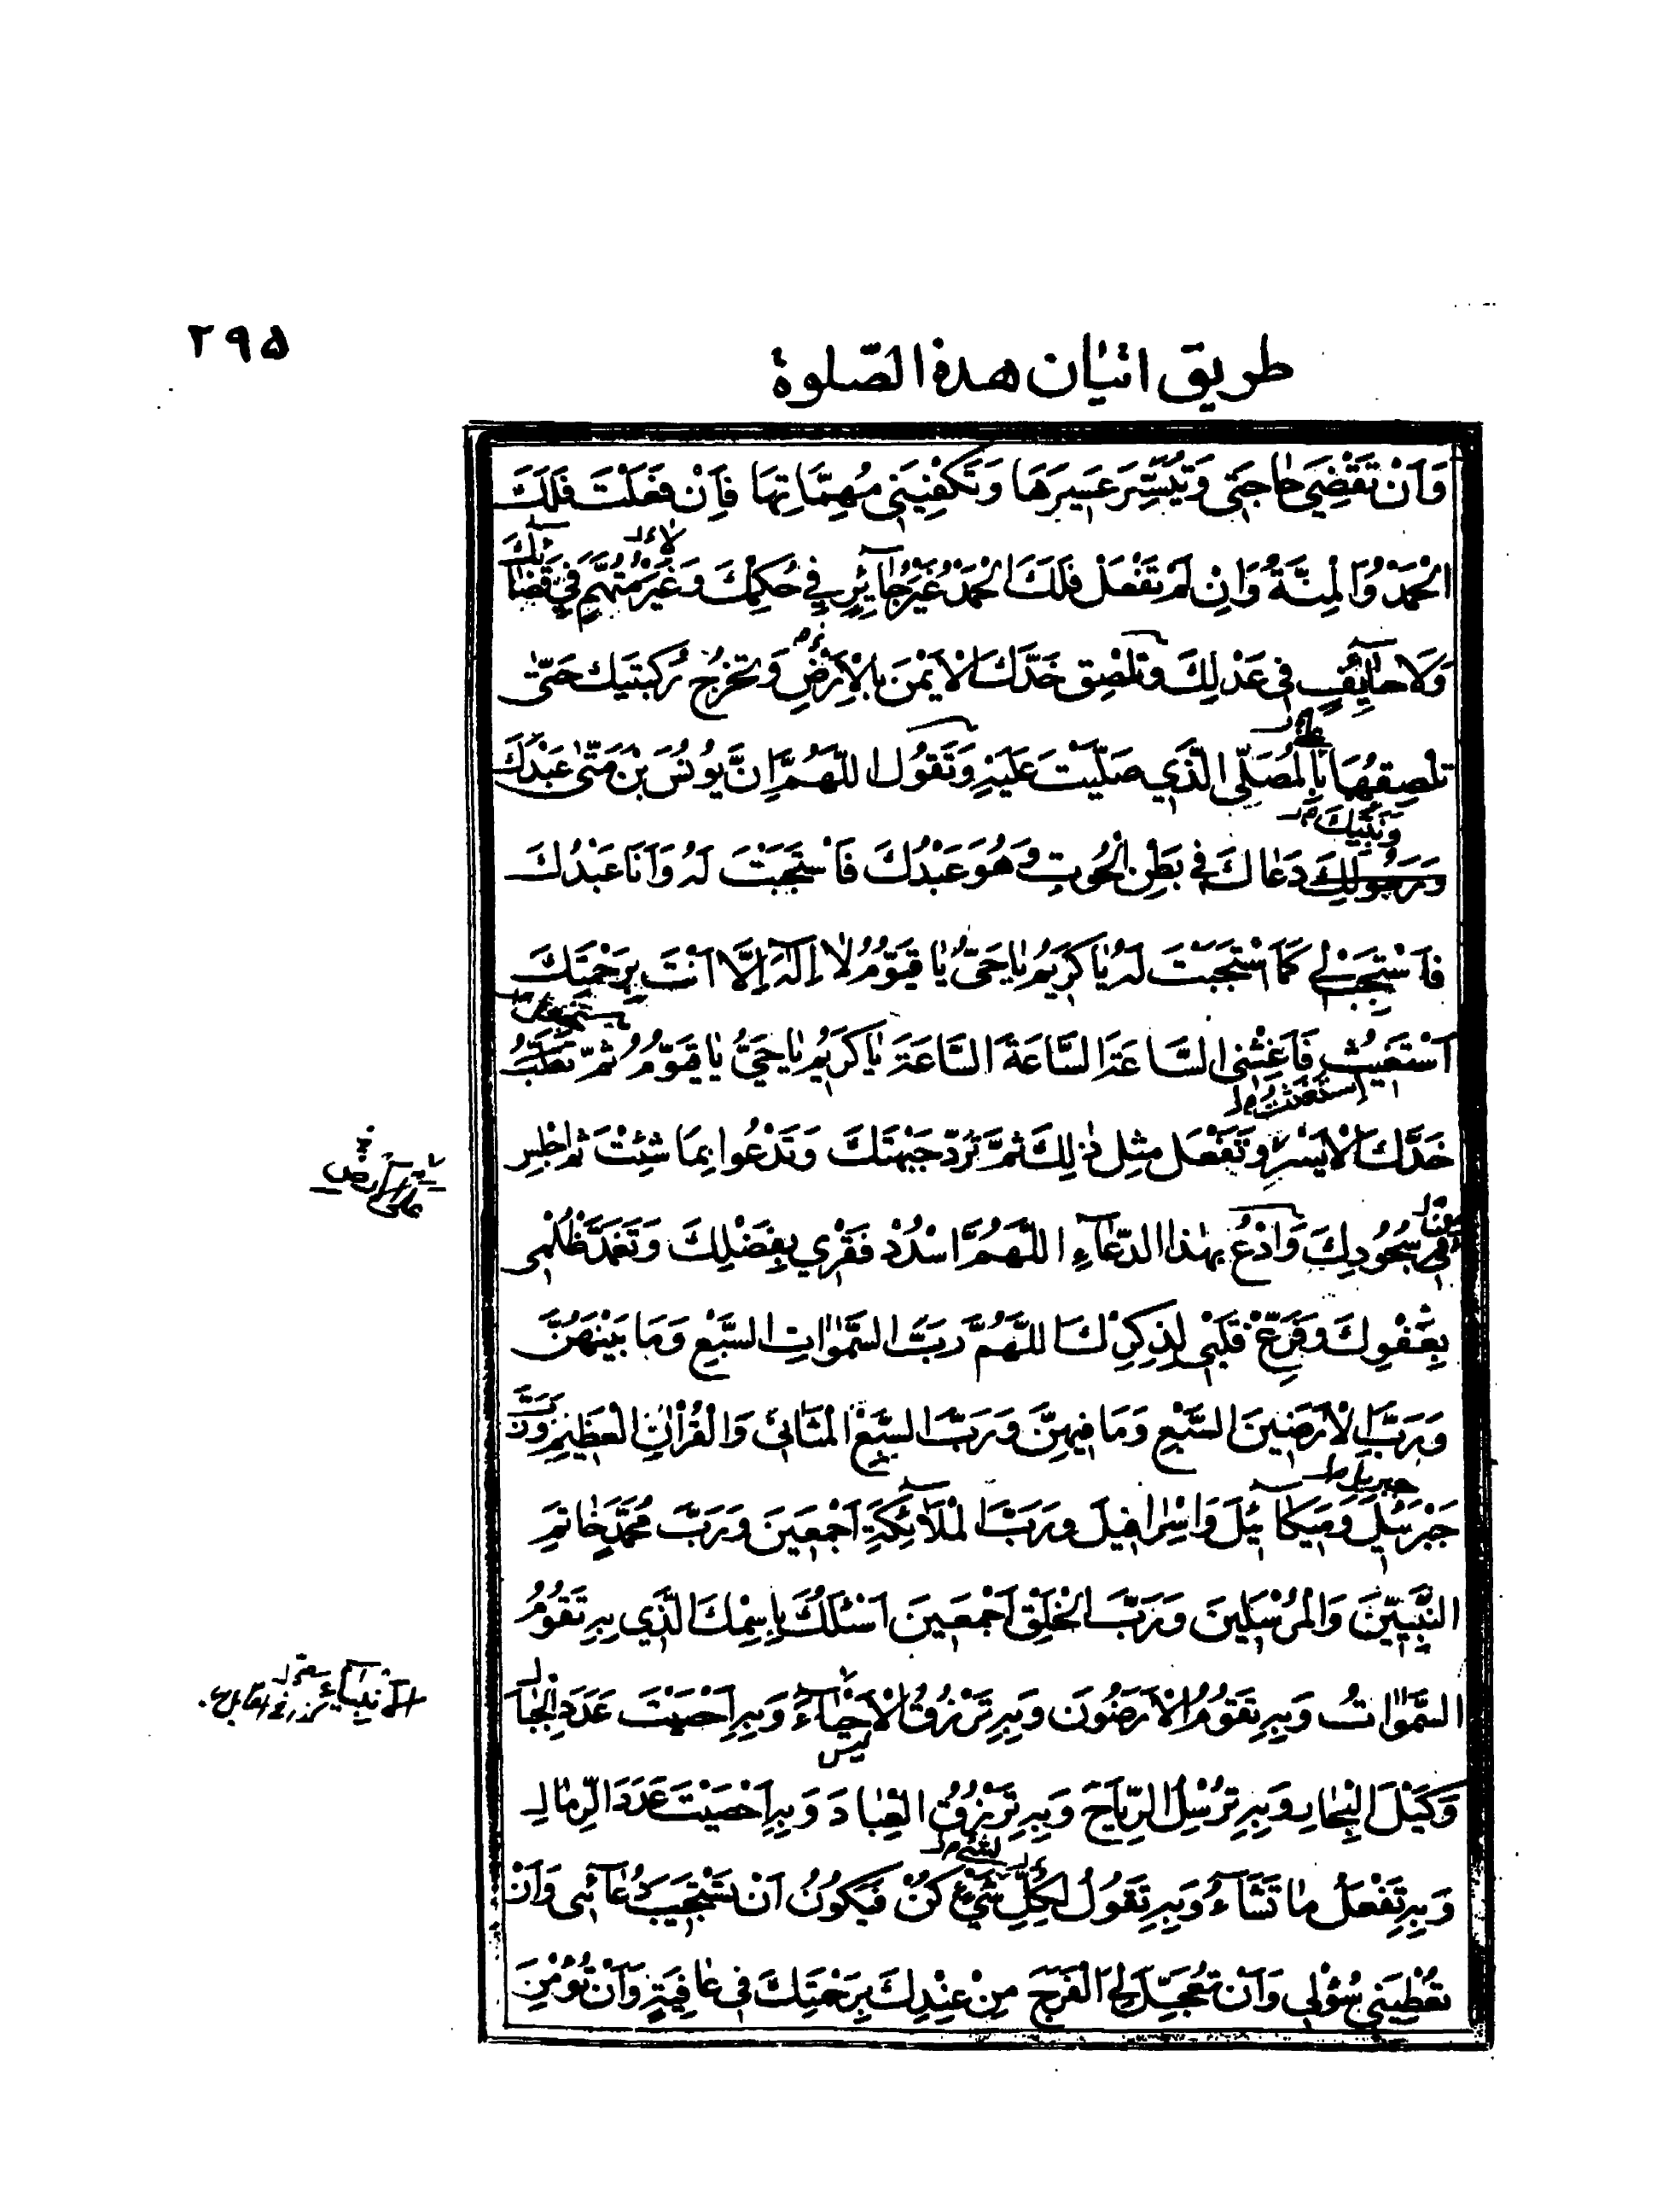 ۲۹۵
طريق اتيان هذه الصّلوة
وَاَنْ تَقْضِيَ حٰاجَتى وَتُيَسِّرَ عَسيرَهٰا وَتَكْفِيَنى مُهِمّٰاتِهٰا فَاِنْ فَعَلْتَ فَلَكَ
الْحَمْدُ وَالْمِنَّةُ وَاِنْ لَمْ تَفْعَلْ فَلَكَ الْحَمْدُ غَيْرُ جٰائِرٍ في حُكْمِكَ وَغَيْرَ مُتَّهَمٍ في قَضٰائِكَ
وَلٰا حٰائِفٍ فى عَدْلِكَ وتلصق خَدَّكَ الْاَيْمَنَ بِالْاَرْضِ وَتخرُج رُكبتيك حَتّٰى
تلصِقهُهٰا بِالْمُصَلَّى الَّذي صَلَّيْتَ عَلَيْهِ وَتَقُولُ اللّٰهُمَّ اِنَّ يُونُسَ بْنَ مَتّٰى عَبْدُكَ
وَنَبِيُّكَ
وَرَسُولُكَ دَعٰاكَ في بَطْنِ الْحُوتِ وَهُوَ عَبْدُكَ فَاسْتَجَبْتَ لَهُ وَاَنَا عَبْدُكَ
فَاسْتَجِبْ لي كَمَا اسْتَجَبْتَ لَهُ يٰا كَرِيمُ يٰا حَيُّ يٰا قَيُّومُ لٰا اِلٰهَ اِلَّا اَنْتَ بِرَحْمَتِكَ
اَسْتَغيثُ فَاَغِثْنِى السَّاعَةَ السَّاعَةَ السَّاعَةَ يٰا كَرِيمُ يٰا حَيُّ يٰا قَيُّومُ ثُمّ تُقلّبُ
اِسْتَغَثْتُ
خَدَّكَ الْاَيْسَر وَتَفْعَل مِثل ذٰلِكَ ثمَّ تَرُدّ جَبْهَتَكَ وَتَدْعُوا بِمَا شِئْتَ ثم اجْلِس
مِنْ سجُودِكَ وَادْعُ بِهٰذا الدّعٰاءِ اللّٰهُمَّ اسْدُدْ فَقْرِي بِفَضْلِكَ وَتَغَمَّدْ ظُلْمى
بِعَفْوِكَ وَفَرِّغْ قَلْبى لِذِكْرِكَ اللّٰهُمَّ رَبَّ السَّمٰوٰاتِ السَّبْعِ وَمَا بَيْنَهُنَّ
وَرَبَّ الْاَرَضينَ السَّبْعِ وَمَا فيهِنَّ وَرَبَّ السَّبْعِ الْمَثٰانى وَالْقُرْاٰنِ الْعَظيمِ وَرَبَّ
جبريل
جَبْرَئيلَ وَميكٰائيلَ وَاِسْرٰافيلَ وَرَبَّ الْمَلٰائِكَةِ اَجْمَعينَ وَرَبَّ مُحَمَّدٍ خٰاتَمِ
النَّبِيّينَ وَالْمُرْسَلينَ وَرَبَّ الْخَلْقِ اَجْمَعينَ اَسْئَلُكَ بِاسْمِكَ الَّذي بِهِ تَقُومُ
السَّمٰوٰاتُ وَبِهِ تَقُومُ الْاَرَضُونَ وَبِهِ تَرْزُقُ الْاَحْيٰاءَ وَبِهِ اَحْصَيْتَ عَدَدَ الْجِبٰال
وَكَيْلَ الْبِحٰارِ وَبِهِ تُرْسِلُ الرِّيٰاحَ وَبِهِ تَرْزُقُ الْعِبٰادَ وَبِهِ اَحْصَيْتَ عَدَدَ الرِّمٰالِ
وَبِهِ تَفْعَلُ مٰا تَشٰاءُ وَبِهِ تَقُولُ لِكُلِّ شَيْءٍ كُنْ فَيَكُونُ اَنْ تَسْتَجيبَ دُعٰائى وَاَنْ
تُعْطِيَنى سُؤْلى وَاَنْ تُعَجِّلَ لِيَ الْفَرَجَ مِنْ عِنْدِكَ بِرَحْمَتِكَ فى عٰافِيَةٍ وَاَنْ تُؤْمِنَ